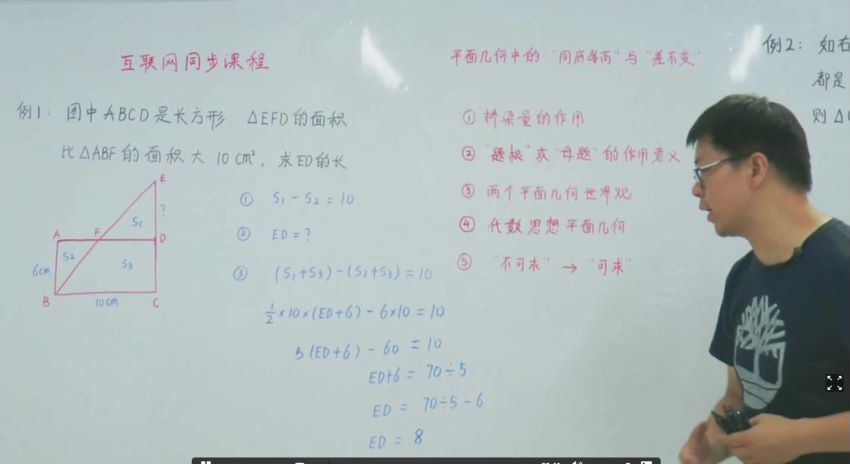 互联网同步课程
例1：图中ABCD是长方形. △EFD的面积
比△ABF的面积大10cm², 求ED的长
E
S₁
?
A
F
D
S₂
S₃
6cm
B
10cm
C
① S₁-S₂=10
② ED=?
③ (S₁+S₃)-(S₂+S₃)=10
½×10×(ED+6)-6×10=10
5(ED+6)-60=10
ED+6=70÷5
ED=70÷5-6
ED=8
平面几何中的"同底等高"与"差不变"
① 桥梁量的作用
② "题根"或"母题"的作用意义
③ 两个平面几何世界观
④ 代数思想平面几何
⑤ "不可求"→"可求"
例2：如右
都是
则△